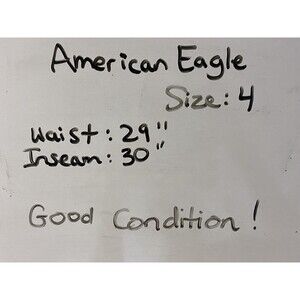 American Eagle
Size: 4
Waist: 29"
Inseam: 30"
Good Condition!